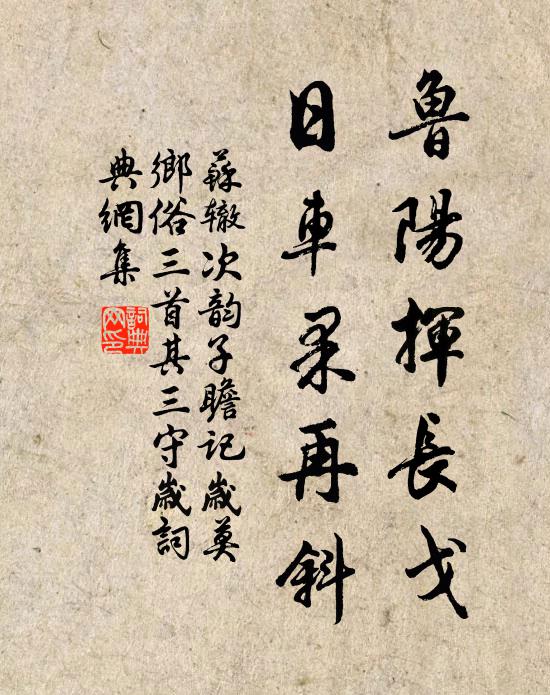 魯陽揮長戈
日車果再斜
蘇辙次韵子瞻记歲莫
鄉俗三首其三守歲詞
典網集
詞典网印